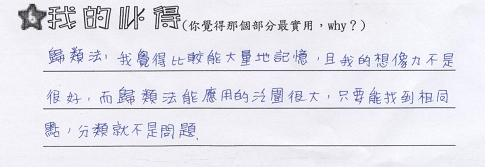 我的心得(你覺得那個部分最實用，why？)
歸類法，我覺得比較能大量地記憶，且我的想像力不是
很好，而歸類法能應用的範圍很大，只要能找到相同
點，分類就不是問題.